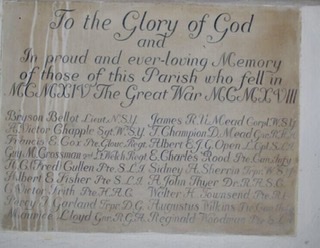 To the Glory of God
and
In proud and ever-loving Memory
of those of this Parish who fell in
MCMXIV The Great War MCMXVIII
Bryson Bellot Lieut. N.S.Y. James R. V. Mead Corpl. W.S.Y.
A. Victor Chapple Sgt. W.S.Y. T. Champion D. Mead
Francis E. Cox Pte. Glouc. Regt. Albert E. J. G. Open L. Cpl S.L.I.
Guy M. Crossman Welch Regt. E. Charles Rood Pte.
R. G. Fred Cullen Pte. S.L.I. Sidney A. Sherrin
Albert E. Fisher Pte. S.L.I. A. John Thyer Dr. R.A.S.C.
G. Victor Frith Pte. H.A.C. Walter H. Townsend Pte.
Percy T. Garland D.G. Augustus Wilkins
Maurice Lloyd Gnr. R.G.A. Reginald